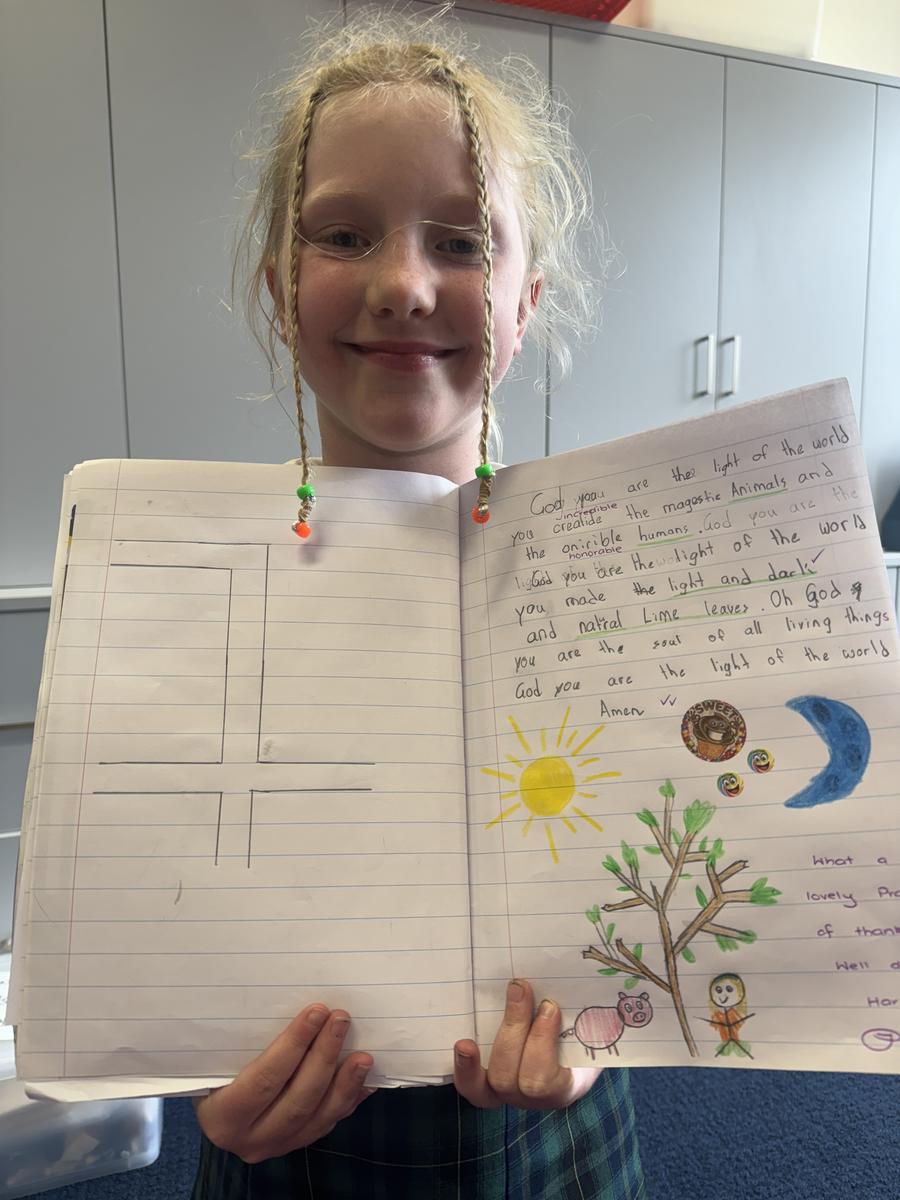 God you are the light of the world
you creatide the magestic Animals and
incredible
the onirible humans. God you are the
honorable
God you are the light of the world
you made the light and dack
and natral Lime leaves. Oh God
you are the soul of all living things
God you are the light of the world
Amen
SWEET
What a
lovely Pra
of thank
Well d
Har